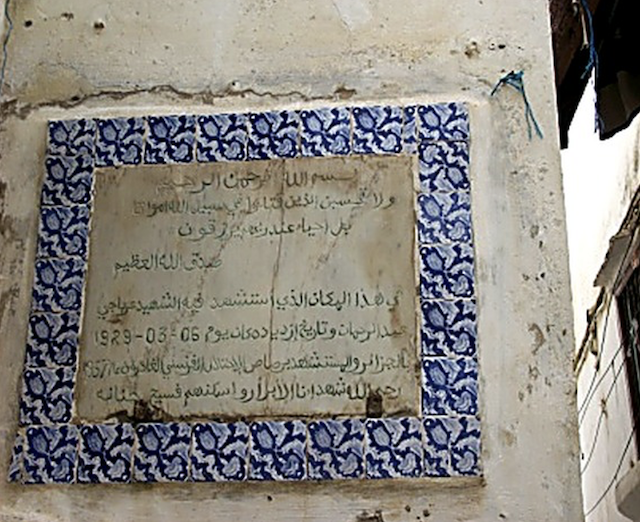 بسم الله الرحمن الرحيم
ولا تحسبن الذين قتلوا في سبيل الله امواتا
بل احياء عند ربهم يرزقون
صدق الله العظيم
في هذا المكان الذي استشهد فيه الشهيد
عبد الرحمان وتاريخ ازدياده كان يوم 06-03-1929
بالجزائر والمستشهد برصاص الاحتلال الفرنسي الغادر
رحم الله شهدانا الابرار واسكنهم فسيح جنانه